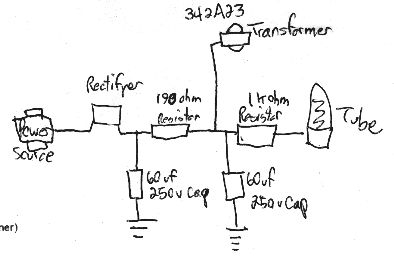 342A23
Transformer
Rectifyer
190ohm
Resistor
1Kohm
Resistor
Power
Source
Tube
60uf
250v Cap
60uf
250v Cap
ner)